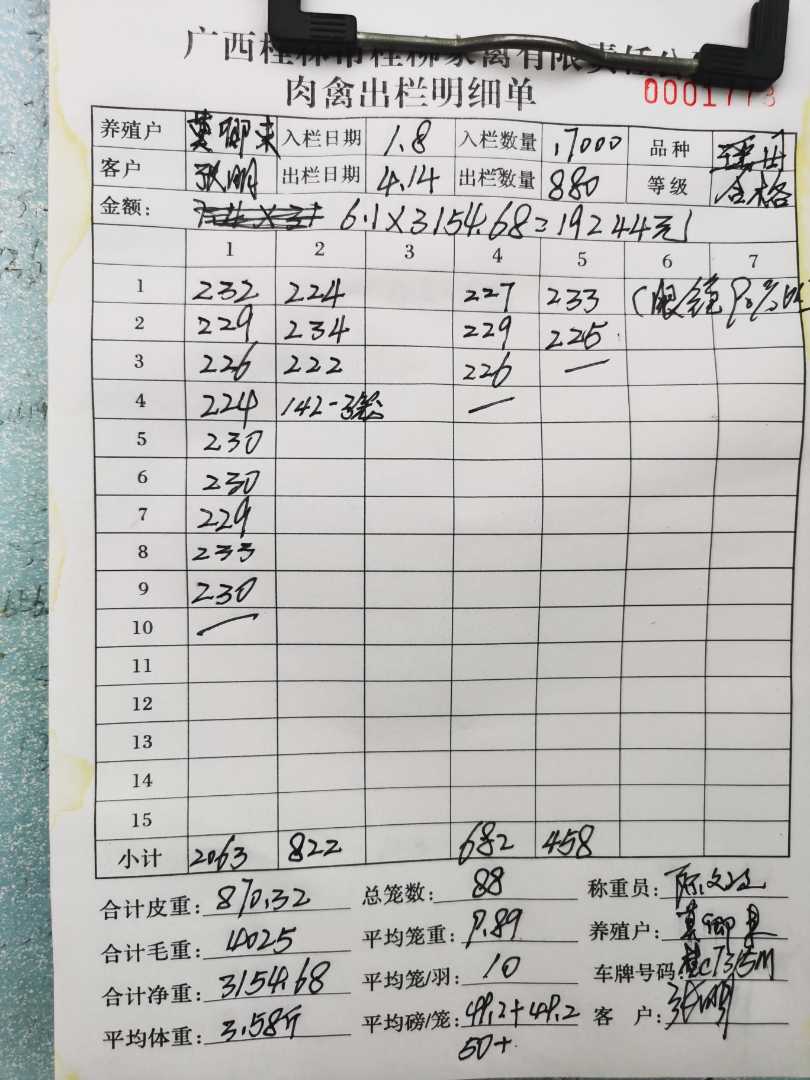 广西桂林市桂柳家禽有限责任公司
肉禽出栏明细单 0001773
养殖户 入栏日期 1.8 入栏数量 17000 品种
客户 张明 出栏日期 4.14 出栏数量 880 等级 合格
金额: 6.1×3154.68=19244元
1 2 3 4 5 6 7
1 232 224 227 233
2 229 234 229 225
3 226 222 226 —
4 224 142-3笼 —
5 230
6 230
7 229
8 233
9 230
10
11
12
13
14
15
小计 2063 822 682 458
合计皮重: 870.32 总笼数: 88 称重员:
合计毛重: 4025 平均笼重: 9.89 养殖户:
合计净重: 3154.68 平均笼/羽: 10 车牌号码: 桂CT315M
平均体重: 3.58斤 平均磅/笼: 49.2+49.2 客 户: 张明
50+